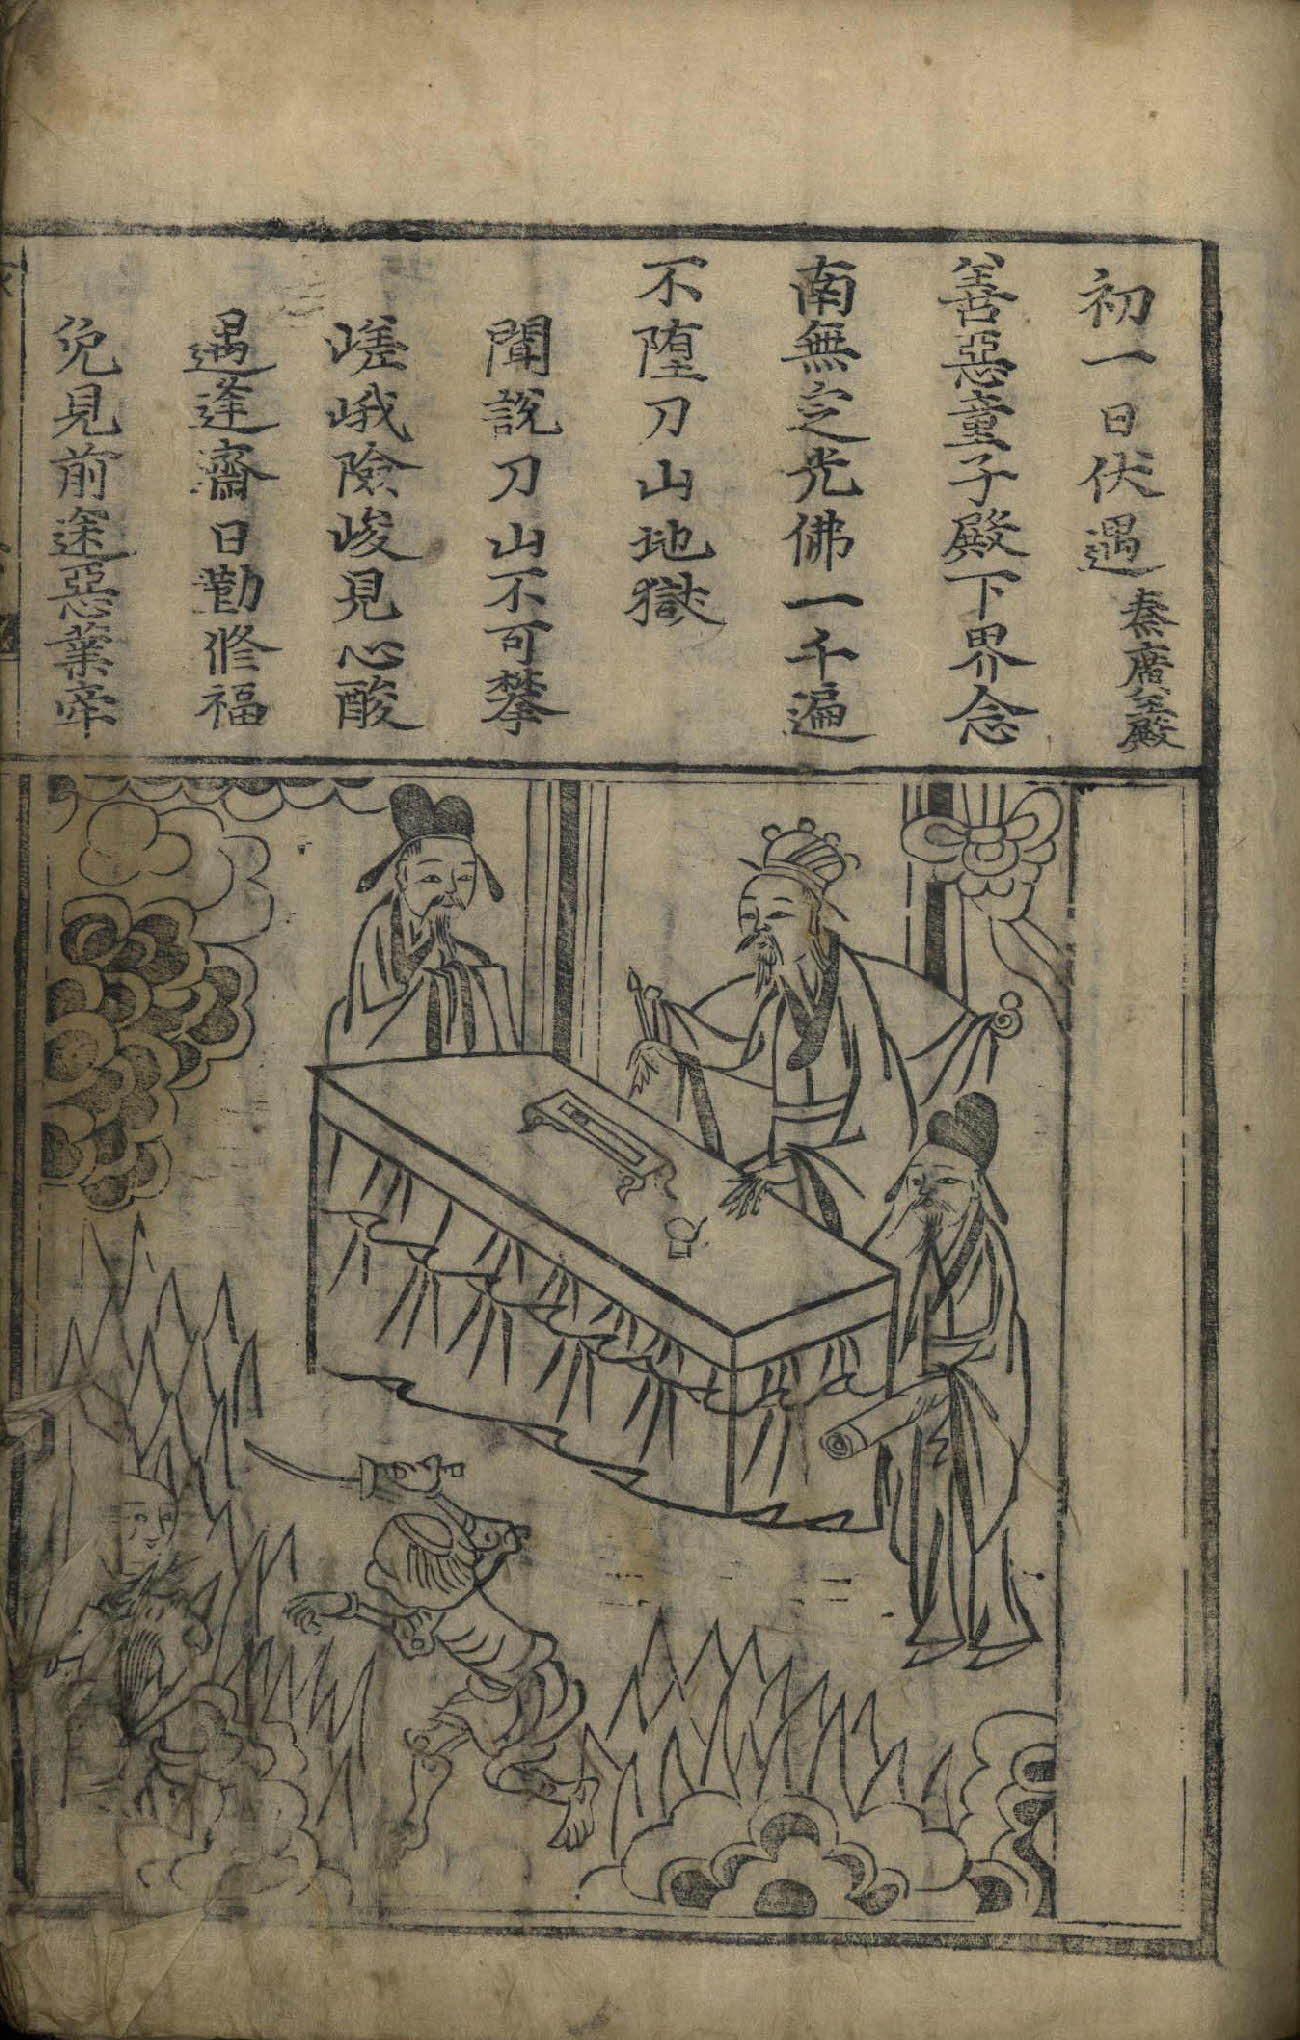 初一日伏遇秦廣王殿
善惡童子殿下界念
南無定光佛一千遍
不墮刀山地獄
聞說刀山不可攀
嵯峨險峻見心酸
遇逢齋日勤修福
免見前途惡業牽